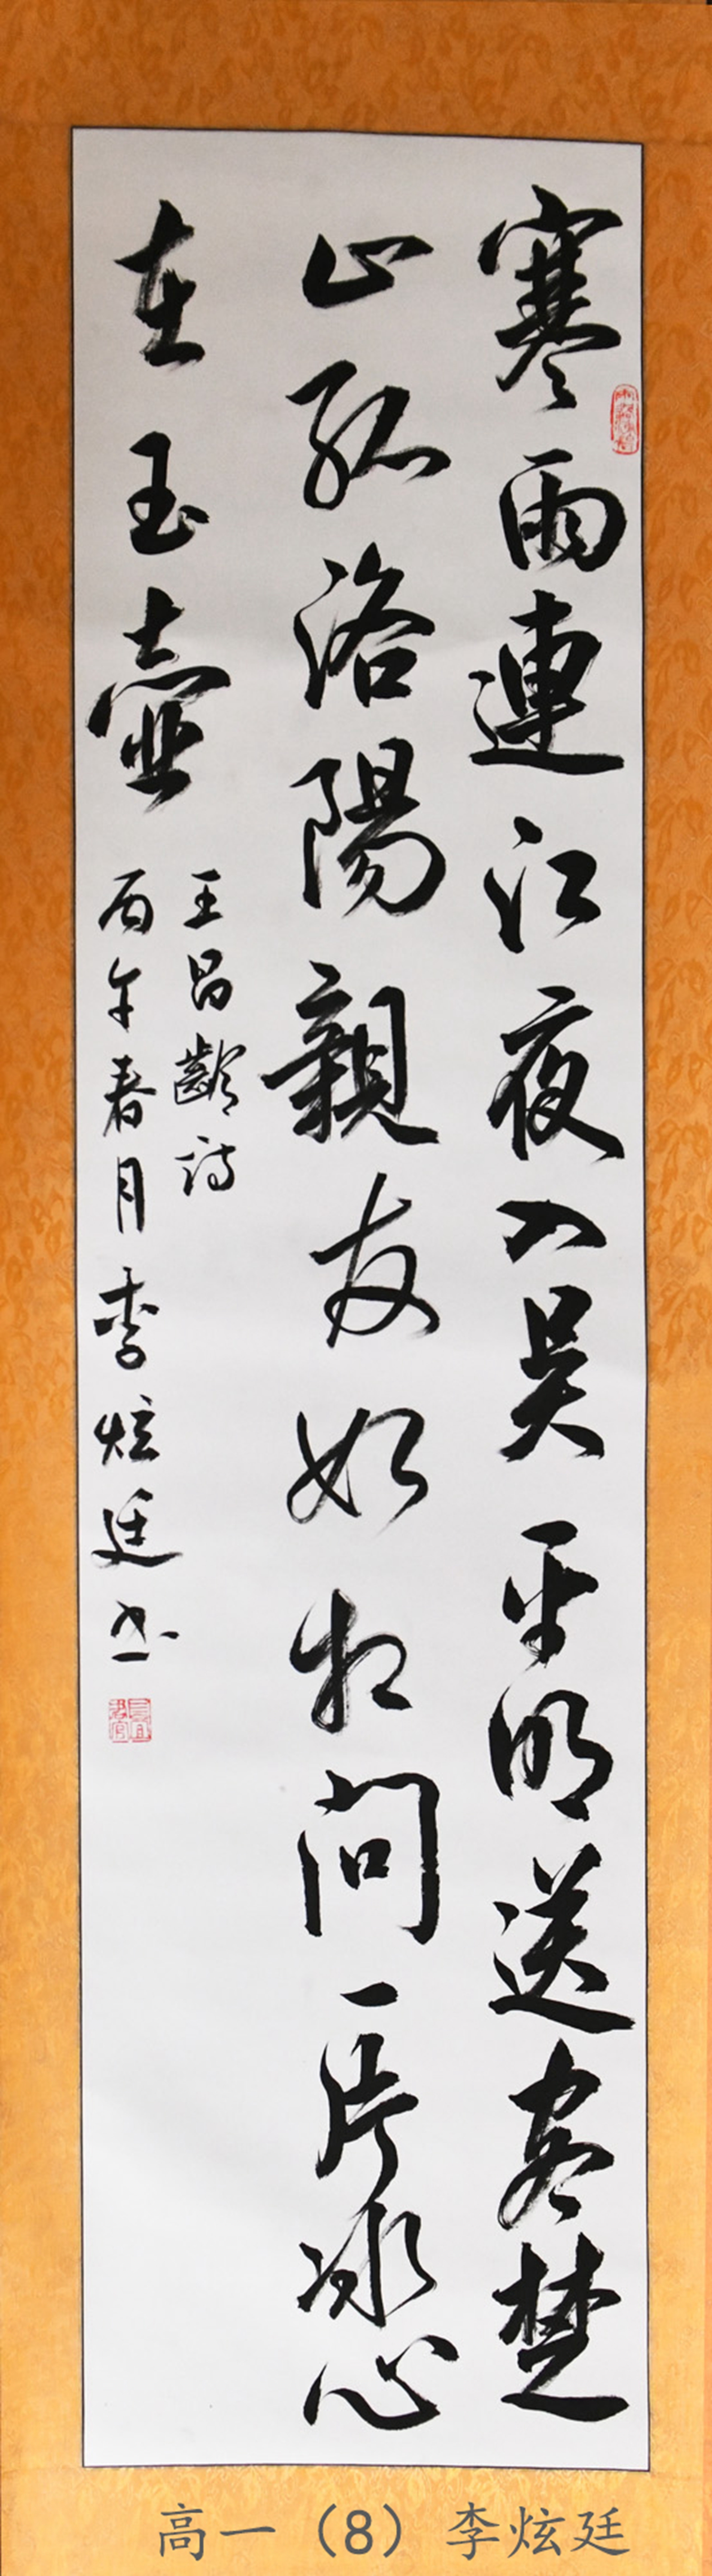 寒雨連江夜入吴平明送客楚
山孤洛陽親友如相問一片冰心
在玉壺
王昌齡詩
丙午春月李炫廷书
高一（8）李炫廷